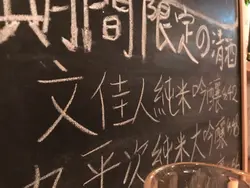 期間限定の清酒
文佳人 純米吟醸
九平次 純米大吟醸